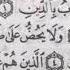 بِٱلدِّينِ
وَلَا يَحُضُّ عَلَىٰ
ٱلَّذِينَ هُمْ